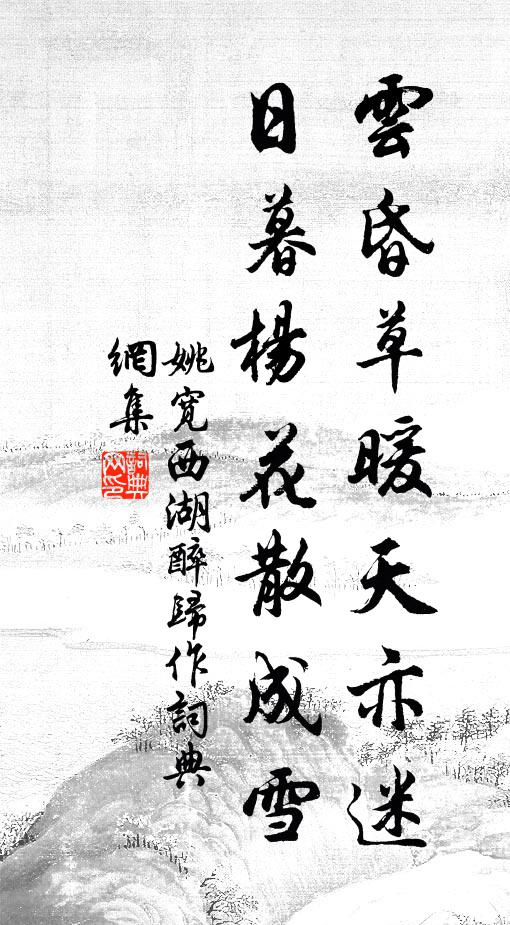 雲昏草暖天亦迷
日暮楊花散成雪
姚寬西湖醉歸作詞典
網集